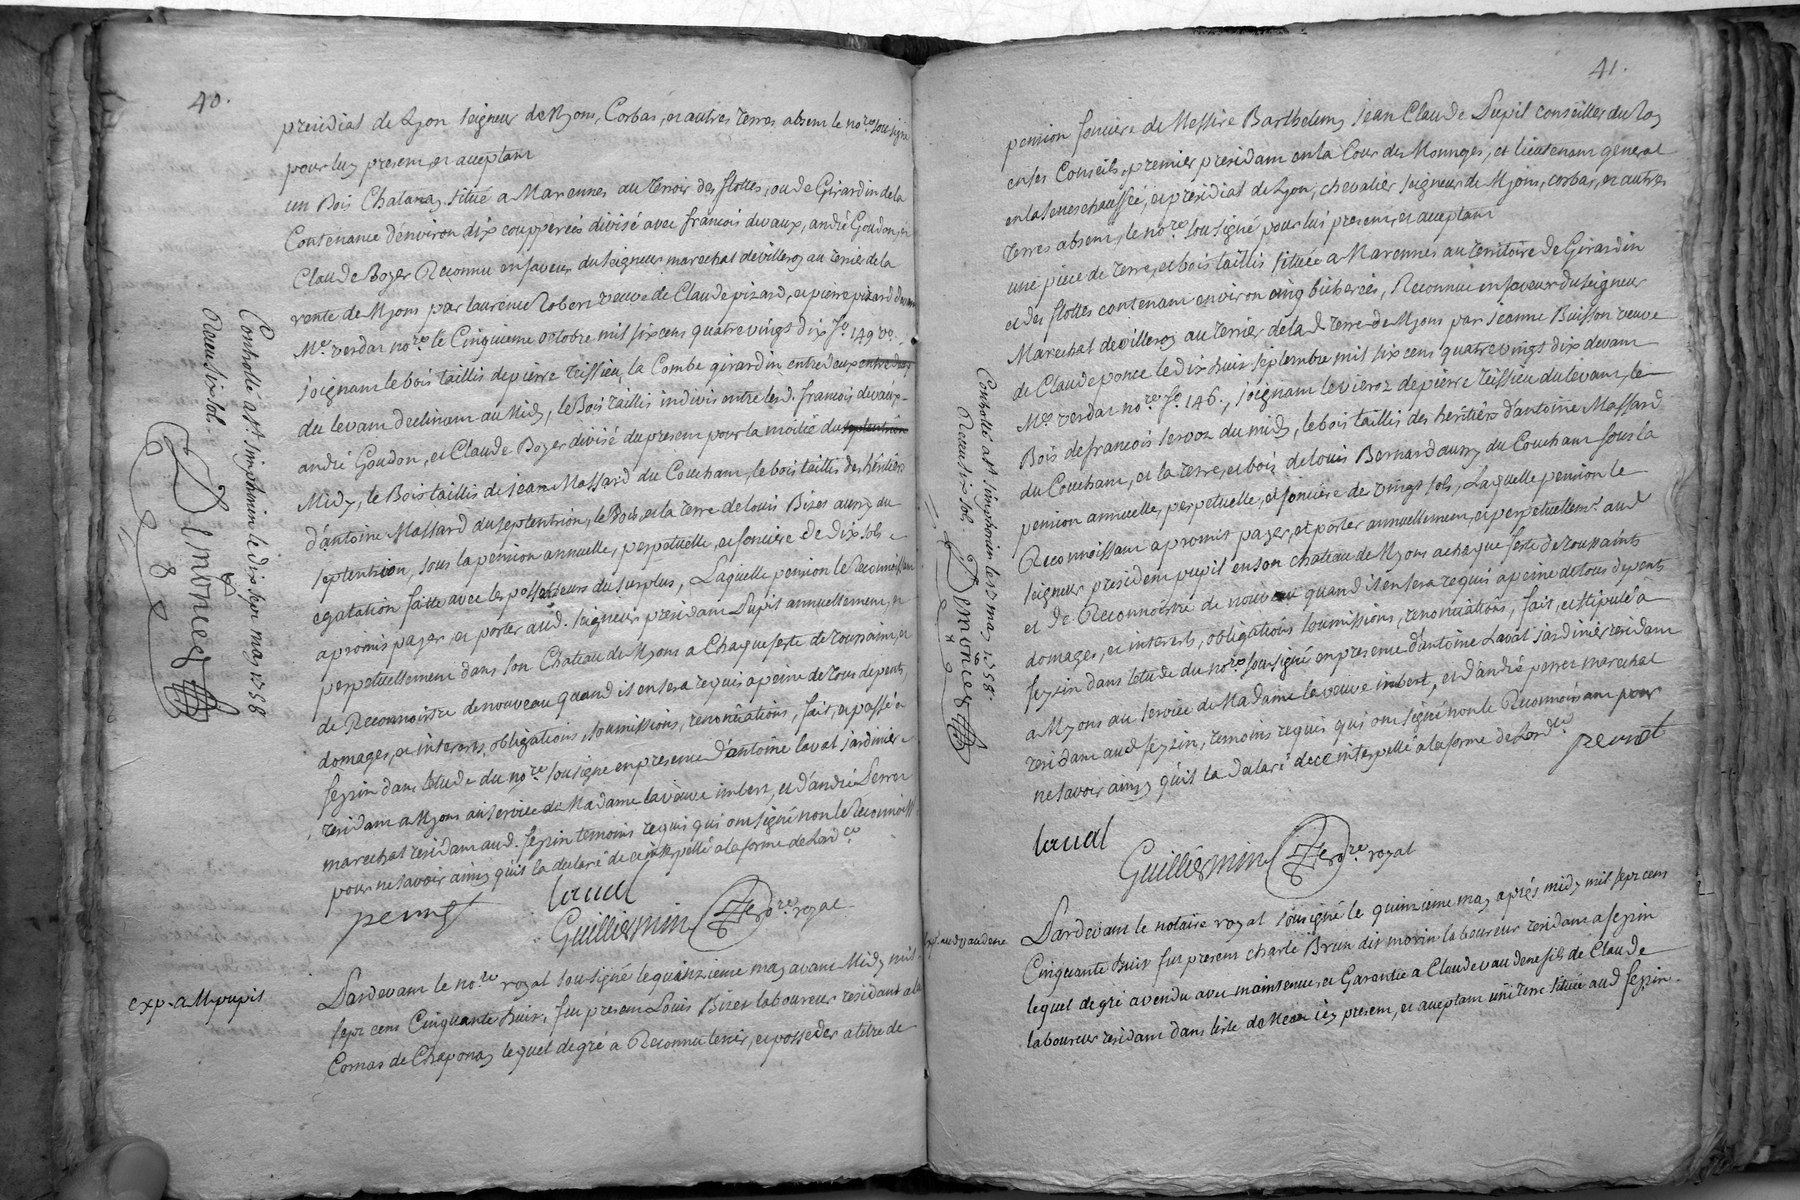 40.
presidial de Lyon seigneur de Myons, Corbas, et autres terres absent le nore. sousigné
pour luy present et aceptant
un Bois Chatanay situé a Marennes au terroir des flottes, ou de Girardin de la
Contenance d'environ dix coupperées divisé avec francois devaux, andré Goudon, et
Claude Boyer Reconnu en faveur du seigneur marechal devilleroy au terrier de la
rente de Myons par laurence Robert veuve de Claude pizard, et pierre pizard devant
Me. verdat nore. le Cinquieme octobre mil six cens quatre vingts dix fo. 149 vo.,
joignant le bois taillis de pierre teissieu la Combe girardin entre deux
du levant declinant au Midy, le Bois taillis indivis entre lesd. francois devaux
andré Goudon, et Claude Boyer divisé du present pour la moitié du septentrion
Midy, le Bois taillis de jean Massard du Couchant, le bois taillis des héritiers
d'antoine Massard du septentrion, le Bois, et la terre de louis Bizet aussy du
septentrion, sous la pension annuelle, perpetuelle, et fonciere de dix sols
egatation faitte avec les possesseurs du surplus, Laquelle pension le Reconnoissant
a promis payer, et porter aud. seigneur presidant Pupil annuellement, et
perpetuellement dans son Chateau de Myons a Chaque feste de toussaint, et
de Reconnoistre de nouveau quand il en sera requis a peine de tous depents,
domages, et interests, obligations, soumissions, renonciations, fait, et passé a
feyzin dans l'etude du nore. sousigné en presence d'antoine laval jardinier
residant a Myons au service de Madame la veuve imbert, et d'andré Perret
marechal residant aud. feyzin temoins requis qui ont signé non le Reconnoisst
pour ne savoir ainsy qu'il la declaré de ce interpellé a la forme de Lordce
perret laval
Guilliermin nore. royal
exp. a M. pupil
Pardevant le nore. royal sousigné le quinzieme may avant Midy mil
sept cens Cinquante huit, fut present Louis Bizet laboureur residant a la
Comas de Chaponay lequel de gré a Reconnu tenir, et posseder a titre de
Controllé a st. simphorien le dix sept may 1758
Recu six sols.
Demonceg
41.
pension fonciere de Messire Barthelemy jean Claude Pupil conseiller du Roy
en ses Conseils, premier presidant en la Cour des Monnoyes, et lieutenant general
en la seneschaussée, et presidial de Lyon, chevalier seigneur de Myons, corbas, et autres
terres absent, le nore. sousigné pour lui present, et aceptant
une piece de terre, et bois taillis située a Marennes au territoire de Girardin
et des flottes contenant environ cinq bicherées, Reconnue en faveur du seigneur
Marechal devilleroy au terrier de lad. terre de Myons par jeanne Buisson veuve
de Claude ponce le dix huit septembre mil six cens quatre vingt dix devant
Me. verdat nore. fo. 146., joignant le vieroz de pierre teissieu du levant, le
Bois de francois servoz du midy, le bois taillis des heritiers d'antoine Massard
du Couchant, et la terre, et bois de louis Bernard aussy du Couchant sous la
pension annuelle, perpetuelle, et fonciere de vingt sols, Laquelle pension le
Reconnoissant a promis payer, et porter annuellement, et perpetuellemt. aud.
seigneur president pupil en son chateau de Myons a chaque feste de toussaints
et de Reconnoistre de nouveau quand il en sera requis a peine de tous depents
domages, et interests, obligations soumissions, renonciations, fait, et stipulé a
feyzin dans letude du nore. sousigné en presence d'antoine Laval jardinier residant
a Myons au service de Madame la veuve imbert, et d'andré perret marechal
residant aud. feyzin, temoins requis qui ont signé non le Reconnoissant pour
ne savoir ainsy qu'il la declaré de ce interpellé a la forme de Lordce
perret
laval
Guilliermin nore. royal
Controllé a st simphorien le 17 may 1758.
Recu six sols,
Demonceg
exp. aud vaudene
Pardevant le notaire royal sousigné le quinzieme may aprés midy mil sept cens
Cinquante huit fut present charle Brun dit morin laboureur residant a feyzin
lequel de gré a vendu avec maintenue, et Garantie a Claude vaudene fils de Claude
laboureur residant dans l'isle de present, et aceptant une terre située aud feyzin